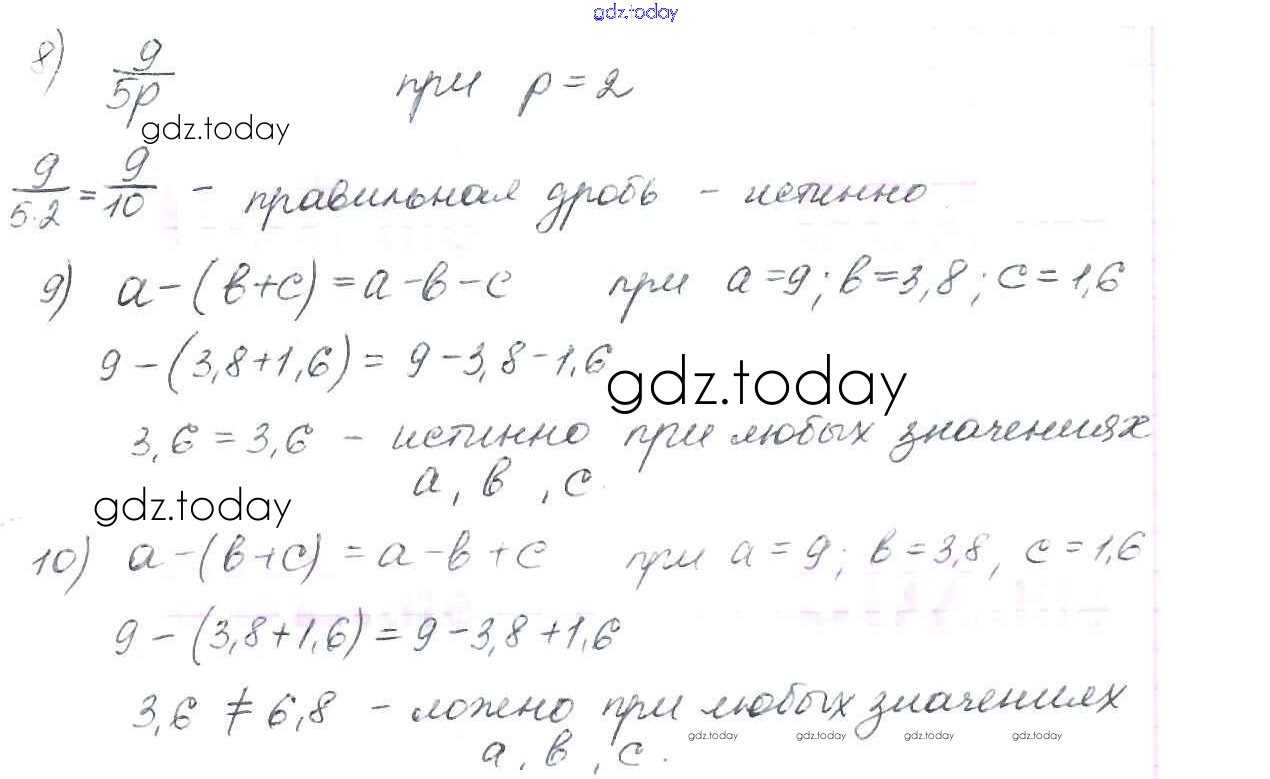 gdz.today
8) 9/5p при p = 2
gdz.today
9/5·2 = 9/10 - правильная дробь - истинно
9) a-(в+c) = a-в-c при a=9; в=3,8; c=1,6
9-(3,8+1,6) = 9-3,8-1,6
gdz.today
3,6 = 3,6 - истинно при любых значениях
a, в, c.
gdz.today
10) a-(в+c) = a-в+c при a=9; в=3,8, c=1,6
9-(3,8+1,6) = 9-3,8+1,6
3,6 ≠ 6,8 - ложно при любых значениях
gdz.today gdz.today gdz.today gdz.today
a, в, c.